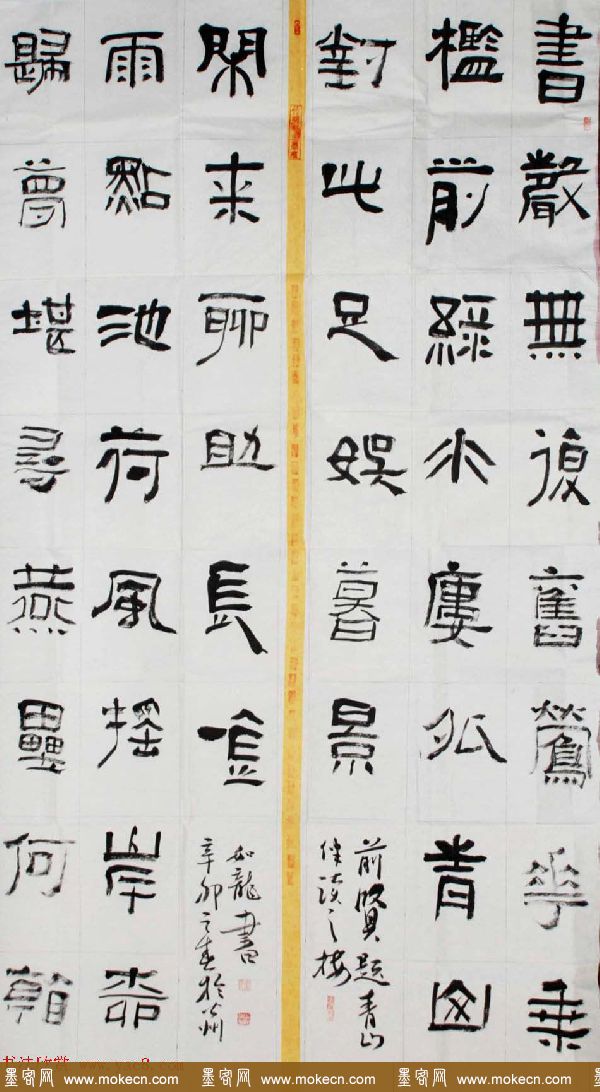 書嚴無復舊鶯華垂
檻前綠水廔孤青山
對此足娛暮景
前賢題青山
之樓
歸夢堪尋燕壘何
雨點池荷風摇岸柳
閑來聊助長吟
如龍書
辛卯之春於州
书法欣赏 www.yac8.com
墨客网 www.mokecn.com 墨客网 www.mokecn.com 墨客网 www.mokecn.com